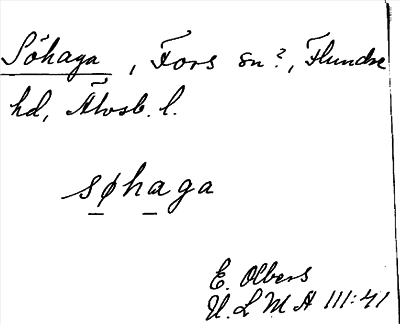 Söhaga, Fors sn?, Flundre
hd, Älvsb. l.
søhaga
E. Olbers
U. L M A III:41